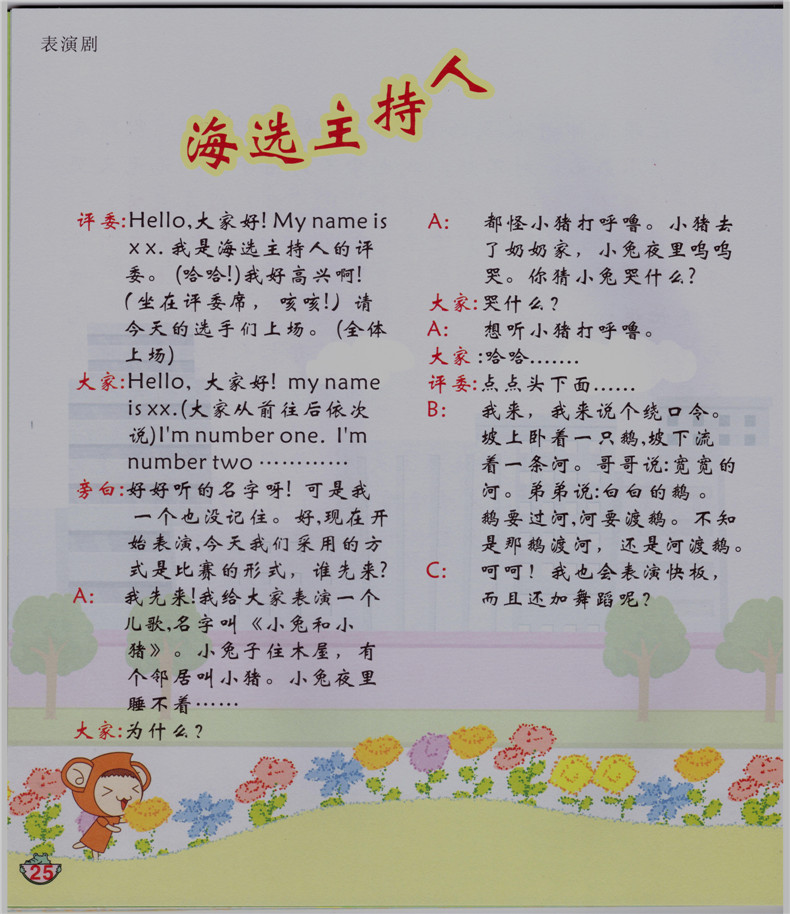 表演剧
海选主持人
评委:Hello,大家好! My name is
x x. 我是海选主持人的评
委。 (哈哈!)我好高兴啊!
(坐在评委席, 咳咳!) 请
今天的选手们上场。 (全体
上场)
大家:Hello, 大家好! my name
is xx.(大家从前往后依次
说)I'm number one. I'm
number two …………
旁白:好好听的名字呀! 可是我
一个也没记住。好,现在开
始表演,今天我们采用的方
式是比赛的形式, 谁先来?
A: 我先来!我给大家表演一个
儿歌,名字叫《小兔和小
猪》。小兔子住木屋, 有
个邻居叫小猪。小兔夜里
睡不着……
大家:为什么?
A: 都怪小猪打呼噜。小猪去
了奶奶家, 小兔夜里呜呜
哭。你猜小兔哭什么?
大家:哭什么?
A: 想听小猪打呼噜。
大家:哈哈.......
评委:点点头下面......
B: 我来, 我来说个绕口令。
坡上卧着一只鹅,坡下流
着一条河。哥哥说:宽宽的
河。弟弟说:白白的鹅。
鹅要过河,河要渡鹅。不知
是那鹅渡河, 还是河渡鹅。
C: 呵呵! 我也会表演快板,
而且还加舞蹈呢?
25